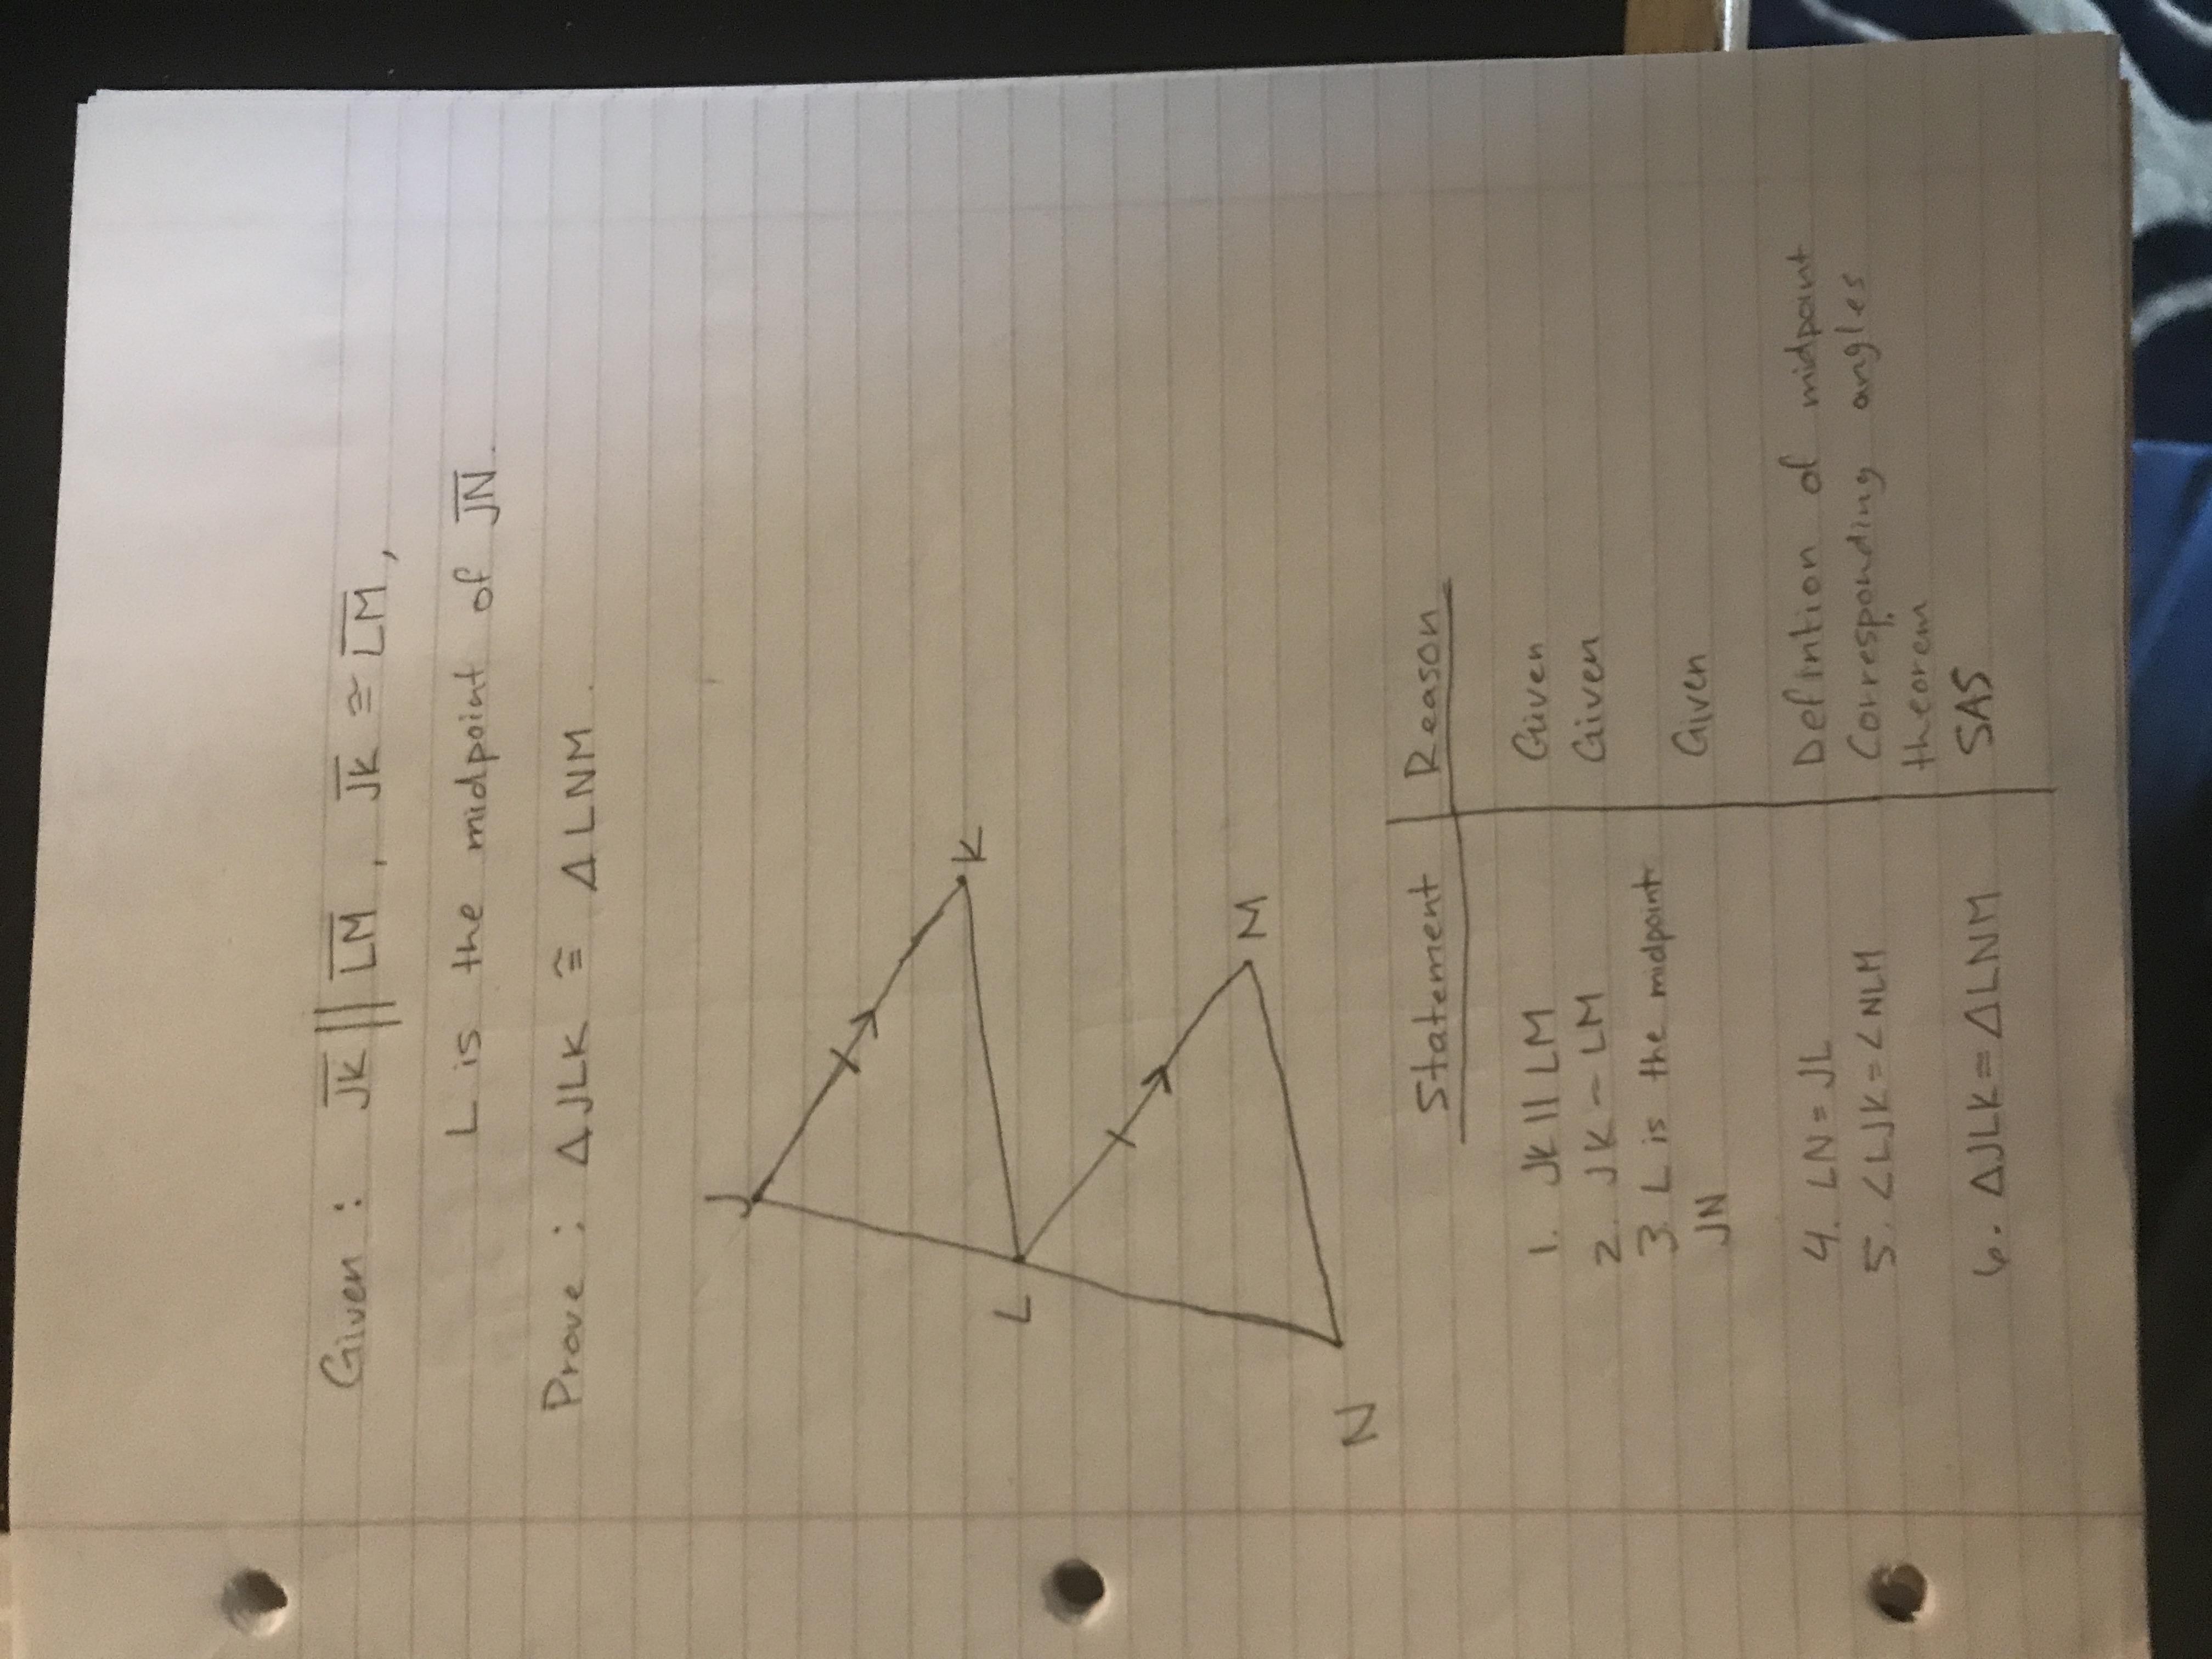 Given : JK || LM , JK ≅ LM ,
L is the midpoint of JN.
Prove : ΔJLK ≅ ΔLNM.
J
K
L
M
N
Statement Reason
1. JK || LM Given
2. JK - LM Given
3. L is the midpoint
JN Given
4. LN = JL Defintion of midpoint
5. <LJK = <NLM Corresponding angles
theorem
6. ΔJLK = ΔLNM SAS